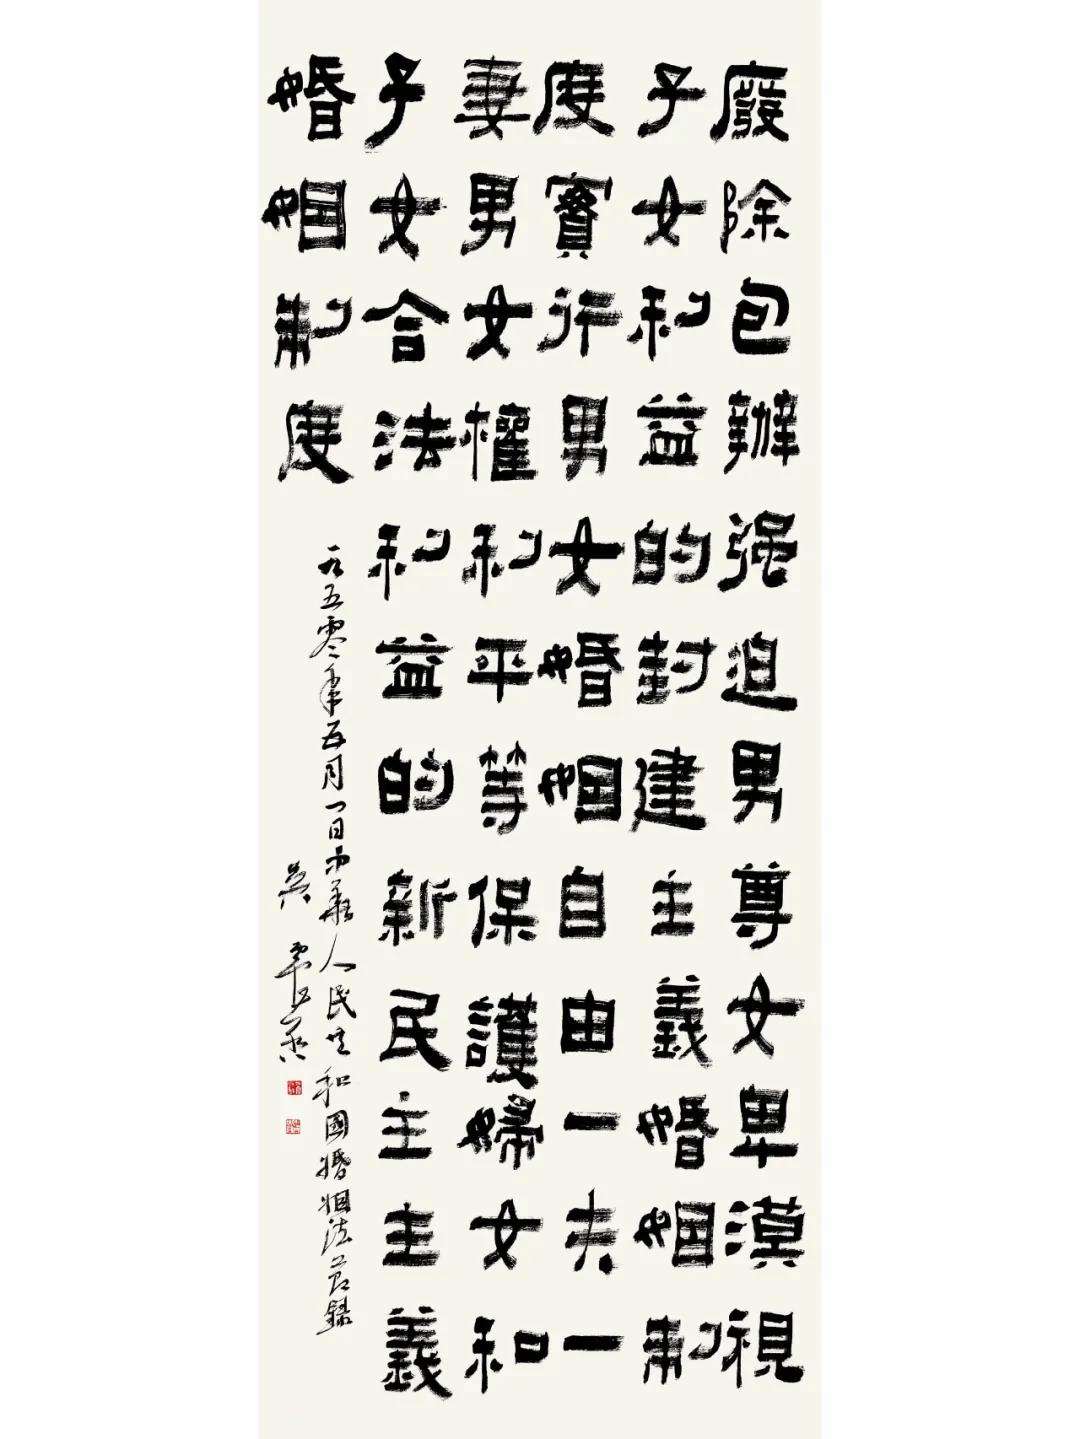 廢除包辦强迫男尊女卑漠視
子女利益的封建主義婚姻制
度實行男女婚姻自由一夫一
妻男女權利平等保護婦女和
子女合法利益的新民主主義
婚姻制度
一九五零年五月一日中華人民共和國婚姻法節錄
吳